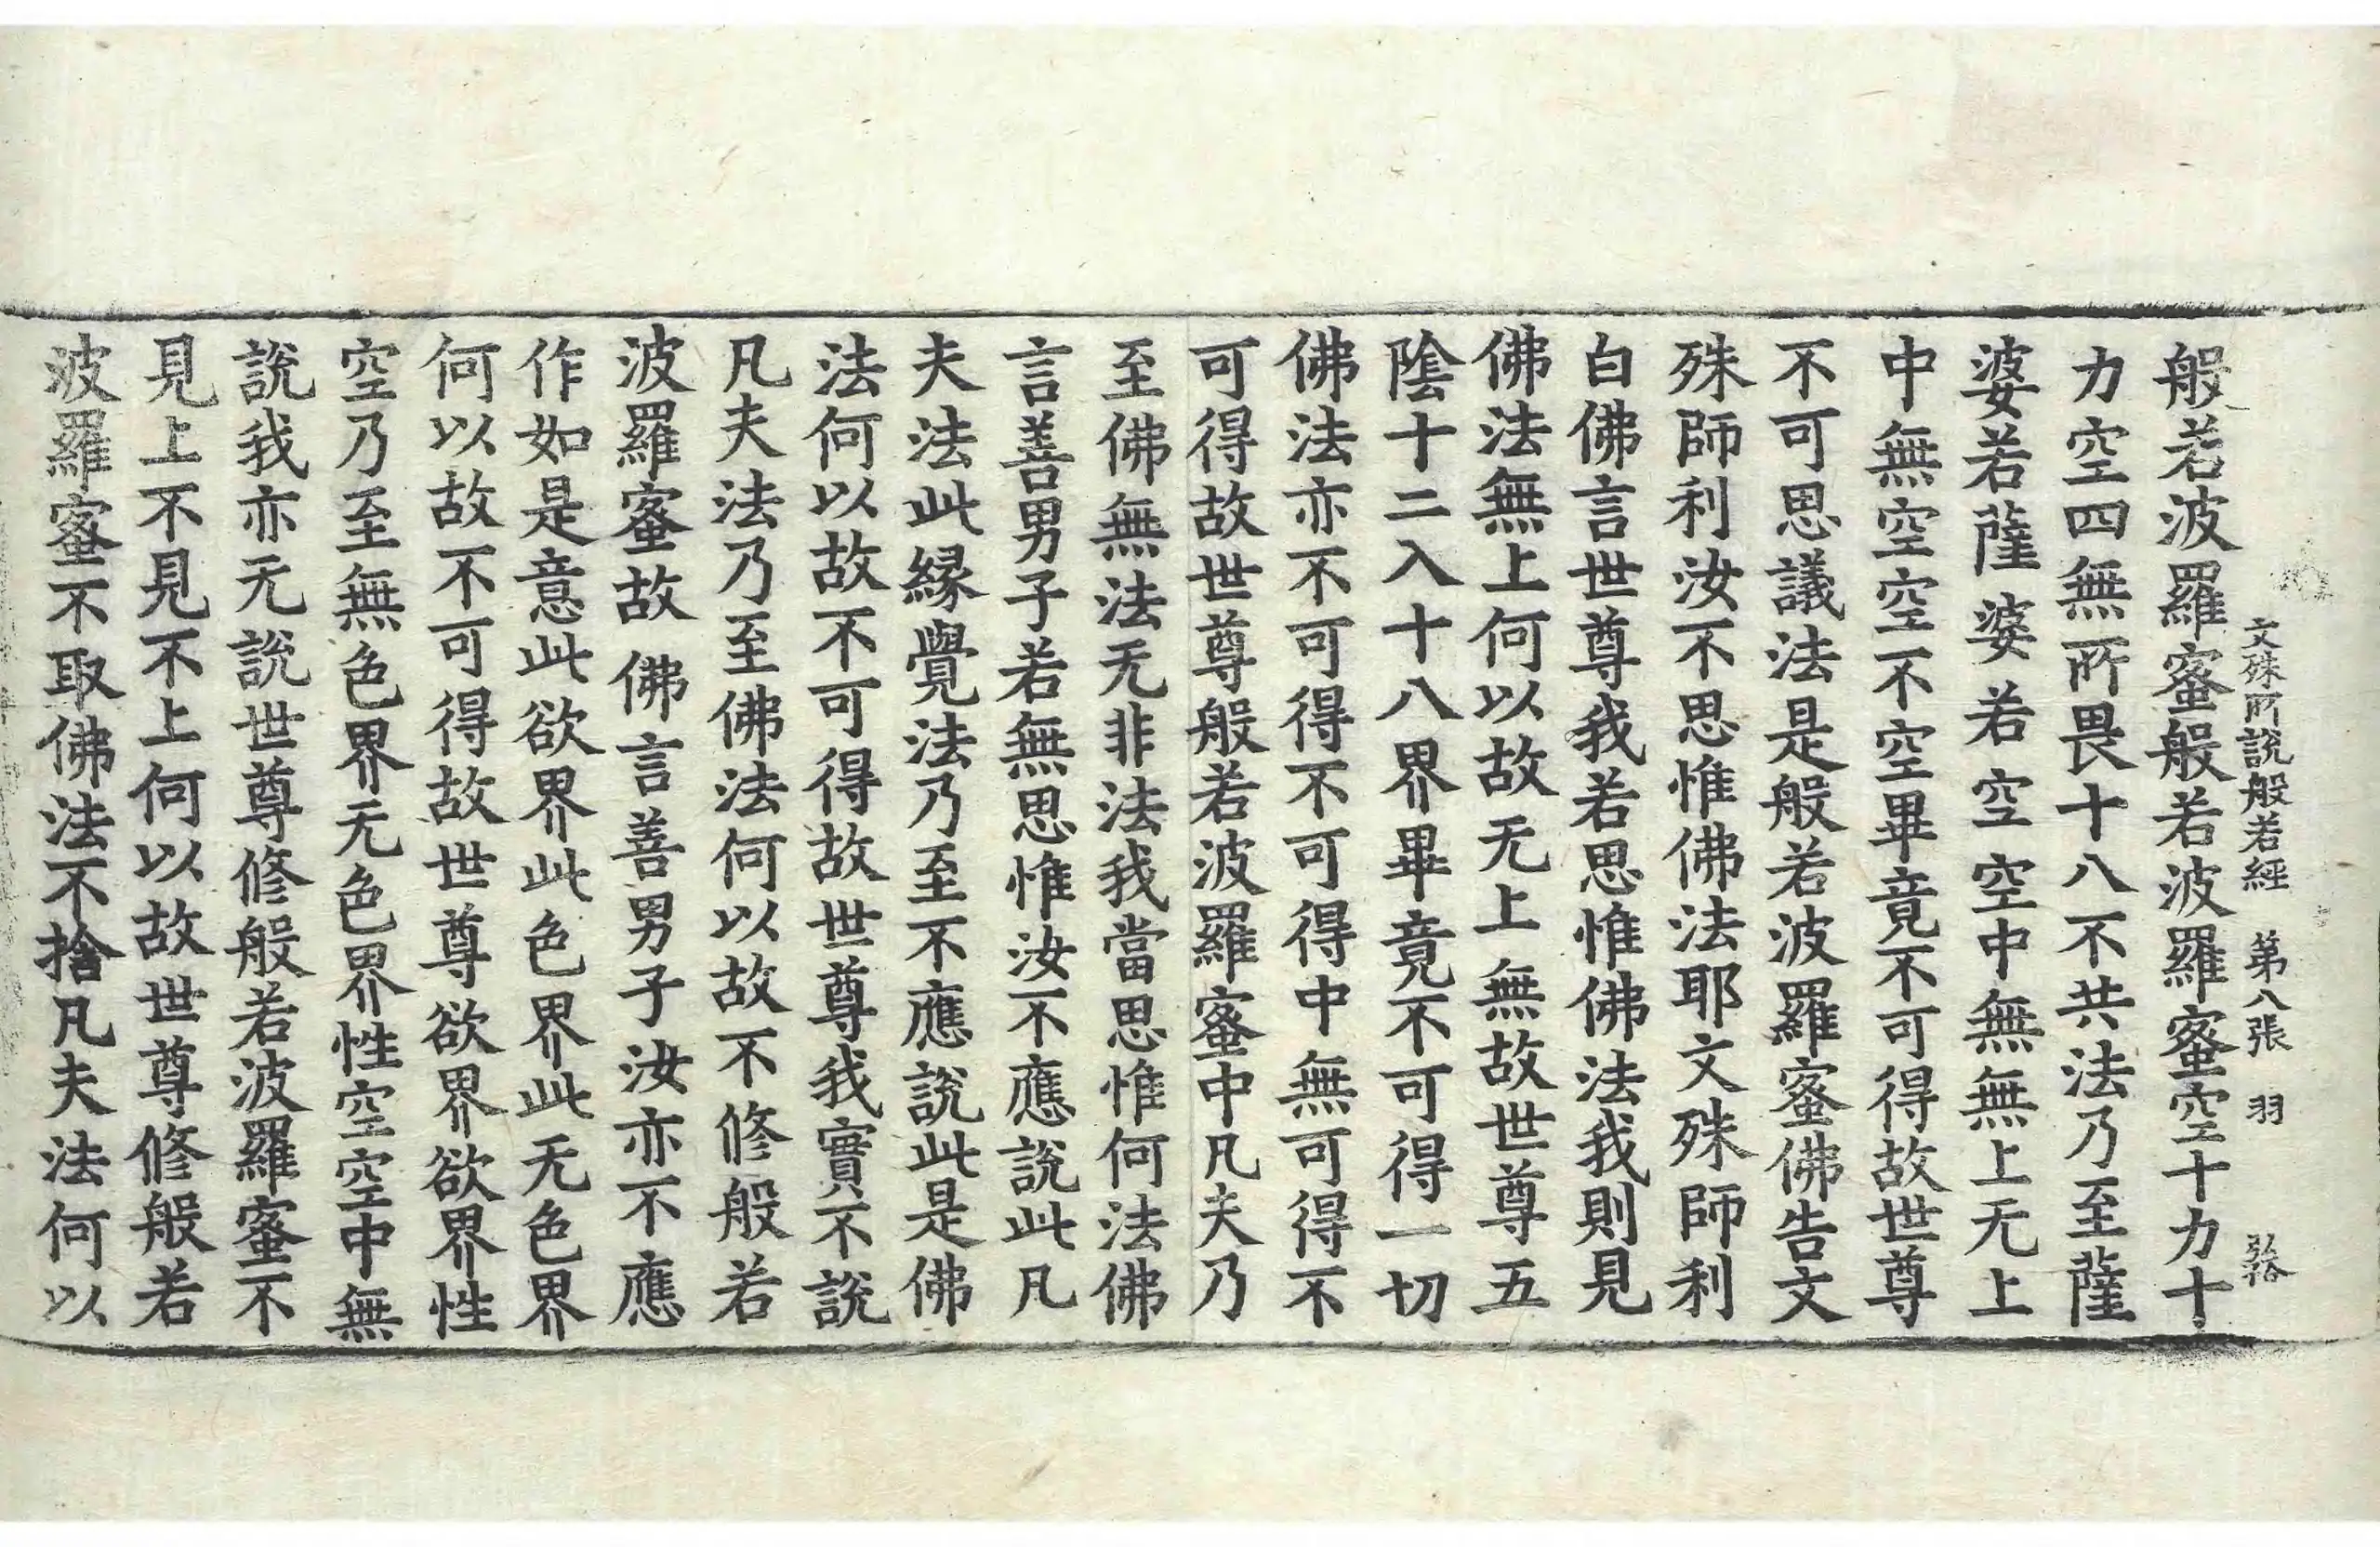 文殊所説般若經 第八張 羽
般若波羅蜜般若波羅蜜空十力十
力空四無所畏十八不共法乃至薩
婆若薩婆若空空中無無上无上
中無空空不空畢竟不可得故世尊
不可思議法是般若波羅蜜佛告文
殊師利汝不思惟佛法耶文殊師利
白佛言世尊我若思惟佛法我則見
佛法無上何以故无上無故世尊五
陰十二入十八界畢竟不可得一切
佛法亦不可得不可得中無可得不
可得故世尊般若波羅蜜中凡夫乃
至佛無法无非法我當思惟何法佛
言善男子若無思惟汝不應説此凡
夫法此緣覺法乃至不應説此是佛
法何以故不可得故世尊我實不説
凡夫法乃至佛法何以故不修般若
波羅蜜故佛言善男子汝亦不應
作如是意此欲界此色界此无色界
何以故不可得故世尊欲界欲界性
空乃至無色界无色界性空空中無
説我亦无説世尊修般若波羅蜜不
見上不見不上何以故世尊修般若
波羅蜜不取佛法不捨凡夫法何以